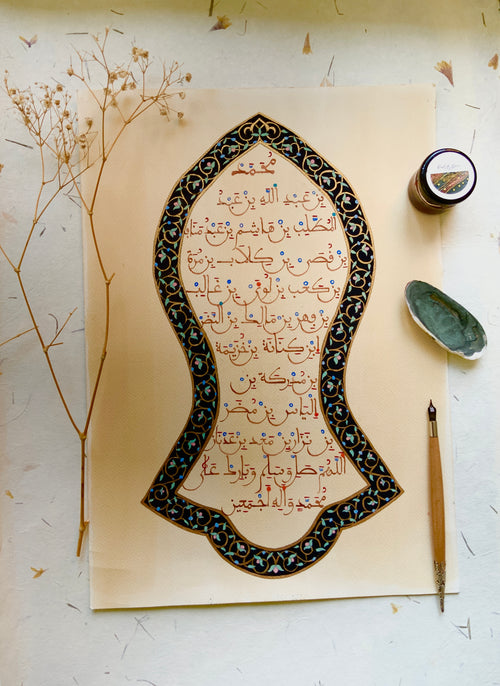 مُحَمَّد
بن عَبد الله بن عَبد
المُطَّلِب بن هَاشِم بن عَبد مَنَاف
بن قُصَي بن كِلَاب بن مُرَّة
بن كَعب بن لُؤَي بن غَالِب
بن فِهر بن مَالِك بن النَضر
بن كِنَانَة بن خُزَيمَة
بن مُدرِكَة بن
إليَاس بن مُضَر
بن نِزَار بن مَعَد بن عَدنَان
اللَّهُمَّ صَلِّ وَسَلِّم وَبَارِك عَلَى
مُحَمَّدٍ وَآلِهِ أَجمَعِين